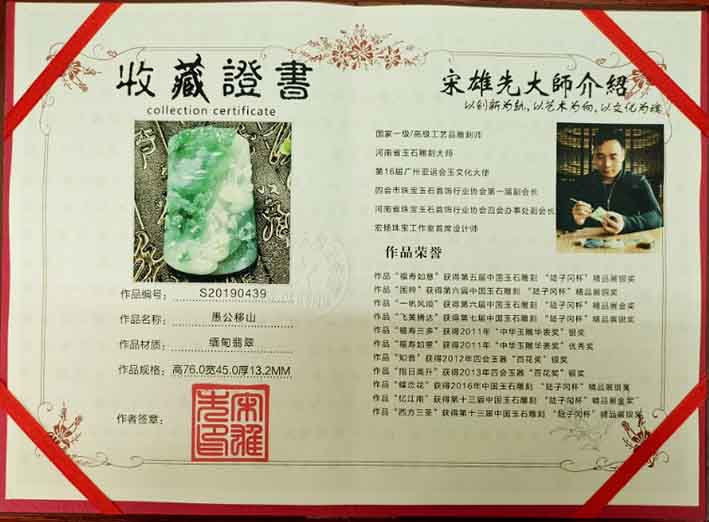 收藏證書
collection certificate
作品编号: S20190439
作品名称: 愚公移山
作品材质: 缅甸翡翠
作品规格: 高76.0宽45.0厚13.2MM
作者签章:
宋雄先印
宋雄先大師介紹
以创新为轨,以艺术为向,以文化为魂
国家一级/高级工艺品雕刻师
河南省玉石雕刻大师
第16届广州亚运会玉文化大使
四会市珠宝玉石首饰行业协会第一届副会长
河南省珠宝玉石首饰行业协会四会办事处副会长
宏倾珠宝工作室首席设计师
作品荣誉
作品“福寿如意”获得第五届中国玉石雕刻 “陆子冈杯”精品展银奖
作品“国粹”获得第六届中国玉石雕刻 “陆子冈杯”精品展铜奖
作品“一帆风顺”获得第六届中国玉石雕刻 “陆子冈杯”精品展金奖
作品“飞黄腾达”获得第七届中国玉石雕刻 “陆子冈杯”精品展银奖
作品“福寿三多”获得2011年“中华玉雕华表奖”银奖
作品“福寿如意”获得2011年“中华玉雕华表奖”优秀奖
作品“知音”获得2012年四会玉器“百花奖”银奖
作品“指日高升”获得2013年四会玉器“百花奖”银奖
作品“蝶恋花”获得2016年中国玉石雕刻 “陆子冈杯”精品展银奖
作品“忆江南”获得第十三届中国玉石雕刻 “陆子冈杯”精品展金奖
作品“西方三圣”获得第十三届中国玉石雕刻 “陆子冈杯”精品展银奖